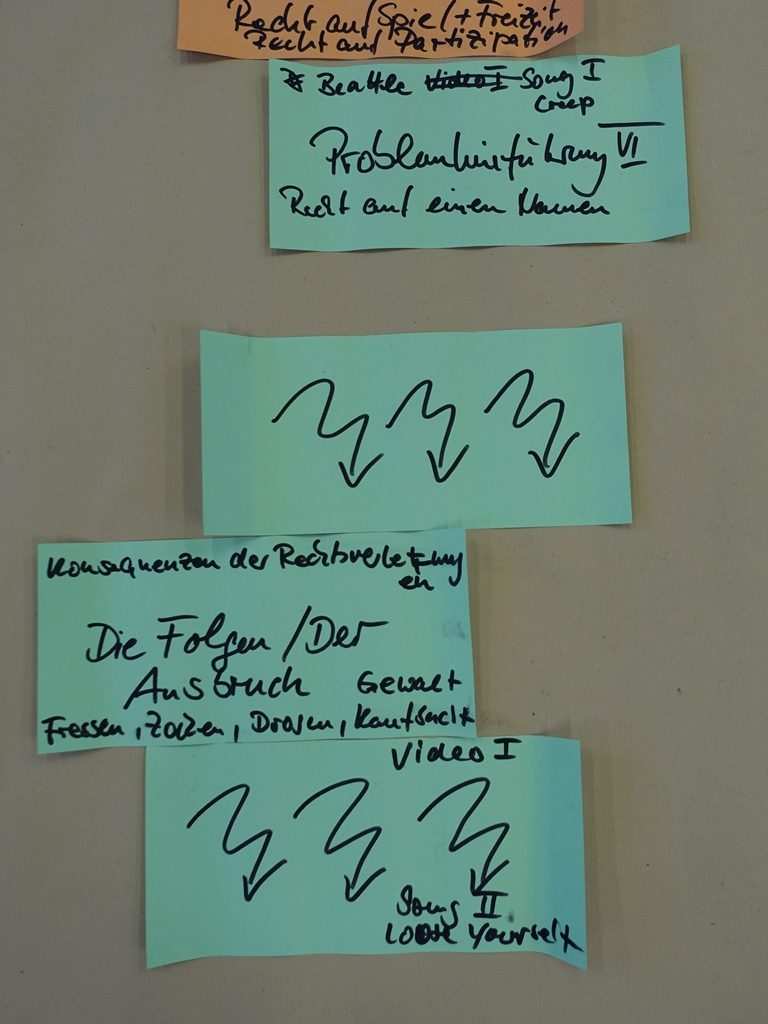 Recht auf Spiel + Freizeit
Recht auf Partizipation
Beattle Video I Song I
Creep
Problemhinführung VI
Recht auf einen Namen
Konsequenzen der Rechtsverletzung
en
Die Folgen / Der
Ausbruch Gewalt
Fressen, Zocken, Drogen, Kaufsucht
Video I
Song II
Loose Yourself